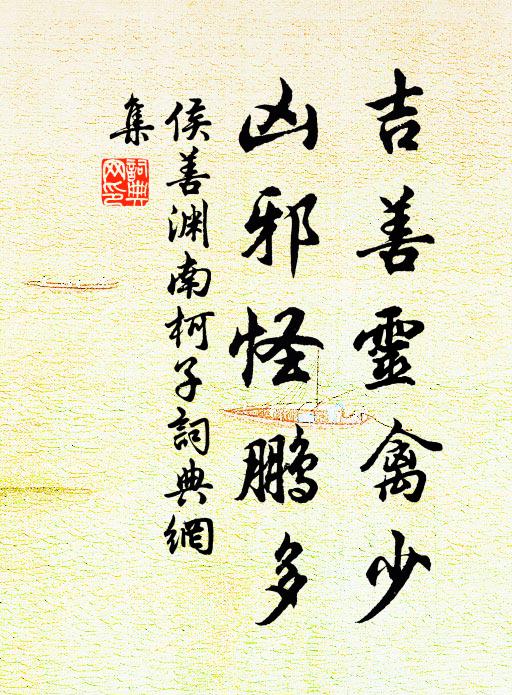 吉善靈禽少
凶邪怪鵬多
侯善渊南柯子詞典網
集
詞典
网印